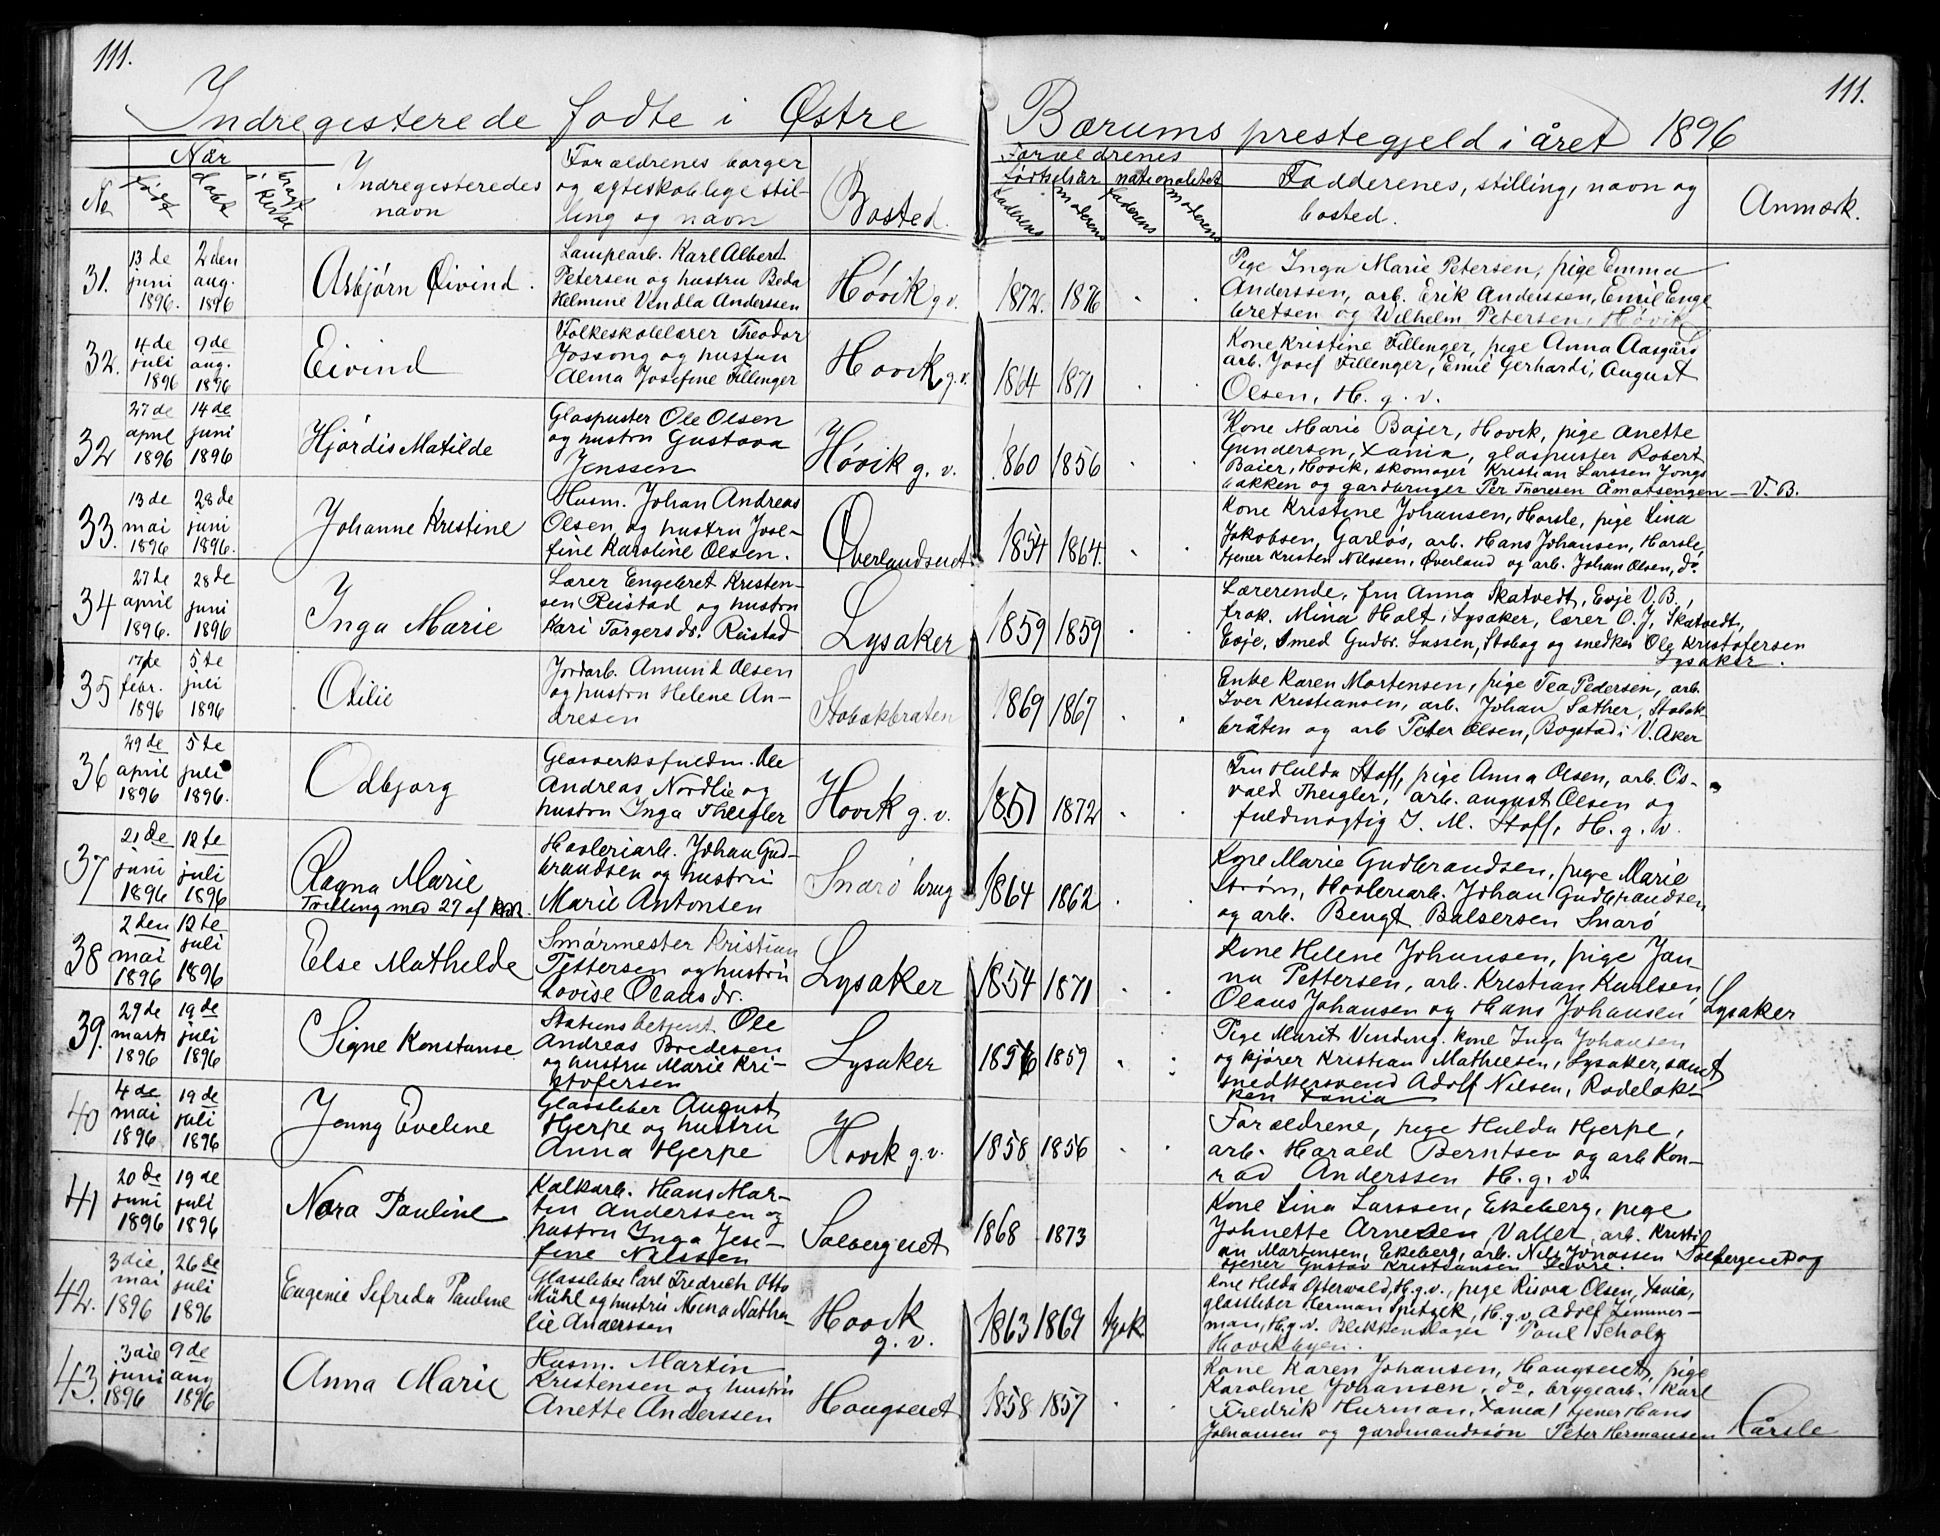 111.
111.
Indregisterede fødte i Østre
Bærums prestegjeld i året 1896
No.
Når
født
døbt
bragt i kirke
Indregisteredes
navn
Forældrenes borger
og ægteskablige stil-
ling og navn
Bosted.
Forældrenes
fødselsår nationalitet
faderens
moderens
faderens
moderens
Fadderenes, stilling, navn og
bosted.
Anmærk.
31.
13 de
juni
1896.
2 den
aug.
1896
Asbjørn Øivind.
Lampearb. Karl Albert
Petersen og hustru Beda
Helmine Vendla Anderssen
Høvik g. v.
1872. 1876
Pige Inga Marie Petersen, pige Emma
Anderssen, arb. Erik Anderssen, Emil Enge
bretsen og Wilhelm Petersen, Høvik
32.
4 de
juli
1896
9 de
aug.
1896
Eivind
Folkeskolelærer Theodor
Jossong og hustru
Alma Josefine Fillinger
Høvik g. v.
1864 1871
Kone Kristine Fillenger, pige Anna Aasgård
arb. Josef Fillenger, Emil Gerhardi, August
Olsen, H. g. v.
32
27 de
april
1896
14 de
juni
1896
Hjørdis Matilde
Glaspuster Ole Olsen
og hustru Gustava
Jenssen
Høvik g. v.
1860 1856
Kone Marie Bajer, Høvik, pige Anette
Gundersen, Xania, glaspuster Robert
Baier, Høvik, skomager Kristian Larssen Jongs
bakken og gardbruger Per Thoresen Åmotsengen - V. B.
33.
13 de
mai
1896
28 de
juni
1896.
Johanne Kristine
Husm. Johan Andreas
Olsen og hustru Jose-
fine Karoline Olsen.
Øverlandseiet
1854 1864.
Kone Kristine Johansen, Horsle, pige Lina
Jakobsen, Garløs, arb. Hans Johansen, Harsle,
tjener Kristen Nilssen, Øverland og arb. Johan Olsen, do.
34
27 de
april
1896.
28 de
juni
1896
Inga Marie
Lærer Engebret Kristen-
sen Reistad og hustru
Kari Torgersdr. Reistad
Lysaker
1859 1859
Lærerende, fru Anna Skatvedt, Evje V. B.,
frøk. Mina Holt, Lysaker, lærer O. J. Skatvedt,
Evje, Smed Gudbr. Lassen, Stabæk og snedker Ole Kristofersen
Lysaker.
35
17 de
febr.
1896
5 te
juli
1896
Otilie
Jordarb. Amund Olsen
og hustru Helene An-
dresen
Stabækbråten
1869 1867
Enke Karen Mortensen, pige Tea Pedersen, arb.
Iver Kristiansen, arb. Johan Sæther, Stabæk-
bråten og arb Peter Olsen, Bogstad i V. Aker
36
29 de
april
1896
5 te
juli
1896.
Odbjørg
Glasverksfuldm. Ole
Andreas Nordlie og
hustru Inga Theigler
Høvik g. v.
1851 1872
Fru Hulda Stoff, pige Anna Olsen, arb. Os-
vald Theigler, arb. august Olsen og
fuldmægtig J. M. Stoff, H. g. v.
37
21 de
juni
1896
12 te
juli
1896
Ragna Marie
Tvilling med 27 af kkøn.
Høvleriarb. Johan Gud-
brandsen og hustru
Marie Antonsen
Snarø brug
1864 1862
Kone Marie Gudbrandsen, pige Marie
Strøm, Høvleriarb. Johan Gudbrandsen
og arb. Bengt Balsersen Snarø
38
2 den
mai
1896
12 te
juli
1896
Else Mathilde
Smørmester Kristian
Pettersen og hustru
Lovise Olausdr.
Lysaker
1854 1871
Kone Helene Johansen, pige Jan-
na Pettersen, arb. Kristian Karlsen
Olaus Johansen og Hans Johansen Lysaker
39.
29 de
marts
1896
19 de
juli
1896
Signe Konstanse
Stationsbetjent Ole
Andreas Bredesen
og hustru Marie Kri-
stofersen
Lysaker
1856 1859
Pige Marit Vinding, kone Inga Johansen
og kjører Kristian Mathiesen, Lysaker, samt
snedkersvend Adolf Nilsen, Rodeløk-
ken Xania
40
4 de
mai
1896
19 de
juli
1896
Jenny Eveline
Glassleber August
Hjerpe og hustru
Anna Hjerpe
Høvik g. v.
1858 1856
Forældrene, pige Hulda Hjerpe,
arb. Harald Berntsen og arb Kon-
rad Anderssen H. g. v.
41
20 de
juni
1896
19 de
juli
1896
Nora Pauline
Kalkarb. Hans Mar-
tin Anderssen og
hustru Inga Jose-
fine Nilssen
Solbergeiet
1868 1873
Kone Lina Larssen, Ekeberg, pige
Johnette Arnesen Valler, arb. Kristi
an Martinsen, Ekeberg, arb. Nils Jonassen Solbergeiet og
tjener Gustav Kristiansen Levre.
42.
3 die
mai
1896
26 de
juli
1896
Eugenie Sefreda Pauline
Glassleber Carl Fredrich Otto
Mühl og hustru Nena Natha-
lie Anderssen
Høvik
g. v.
1863 1869 tysk
Kone Hilda Otterwald, H. g. v., pige Risora Olsen, Xania,
glassleber Herman Spitzek, H. g. v. Adolf Zimmer-
man, H. g. v. Blikkenslager Paul Scholz
Høvikbyen.
43.
3 die
juni
1896
9 de
aug
1896
Anna Marie
Husm. Martin
Kristensen og hustru
Anette Anderssen
Haugseiet
1858 1857
Kone Karen Johansen, Haugseiet, pige
Karoline Johansen, do, brygearb. Karl
Fredrik Hurman, Xania, tjener Hans
Johansen og gardmandssøn Peter Hermansen Kårsle